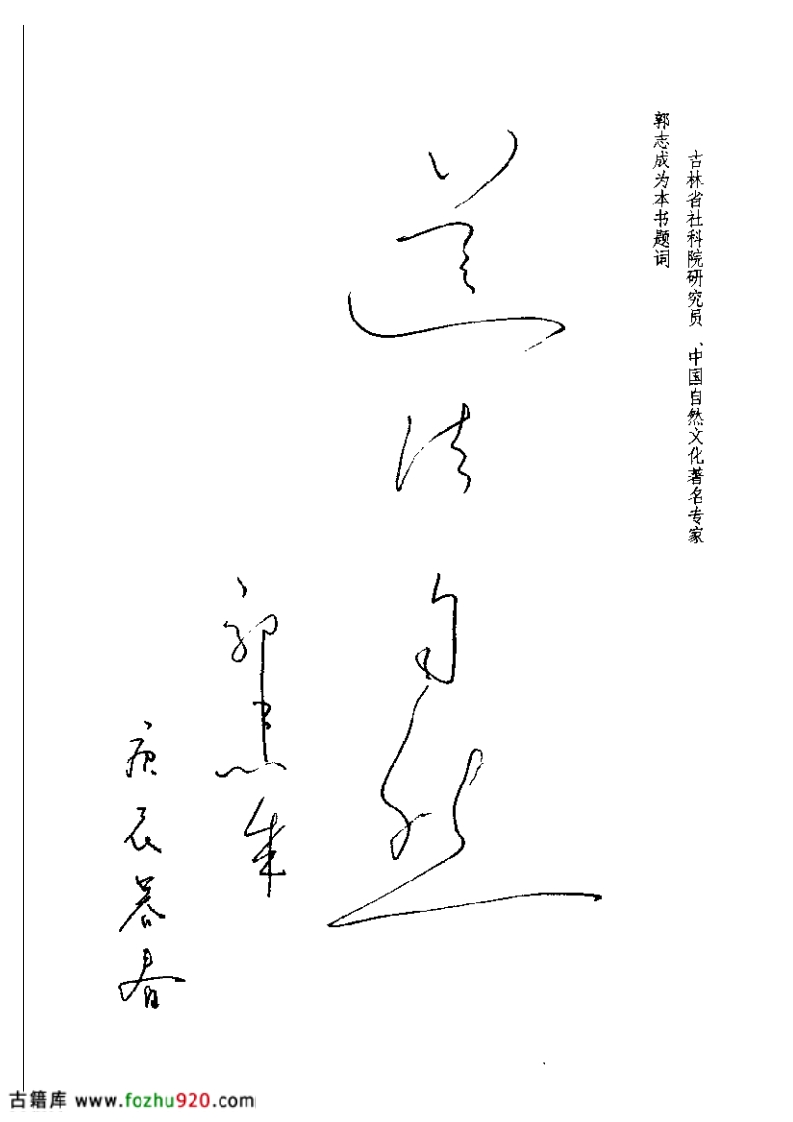 吉林省社科院研究员、中国自然文化著名专家
郭志成为本书题词
道法自然
郭志成
庚辰暮春
古籍库 www.fozhu920.com